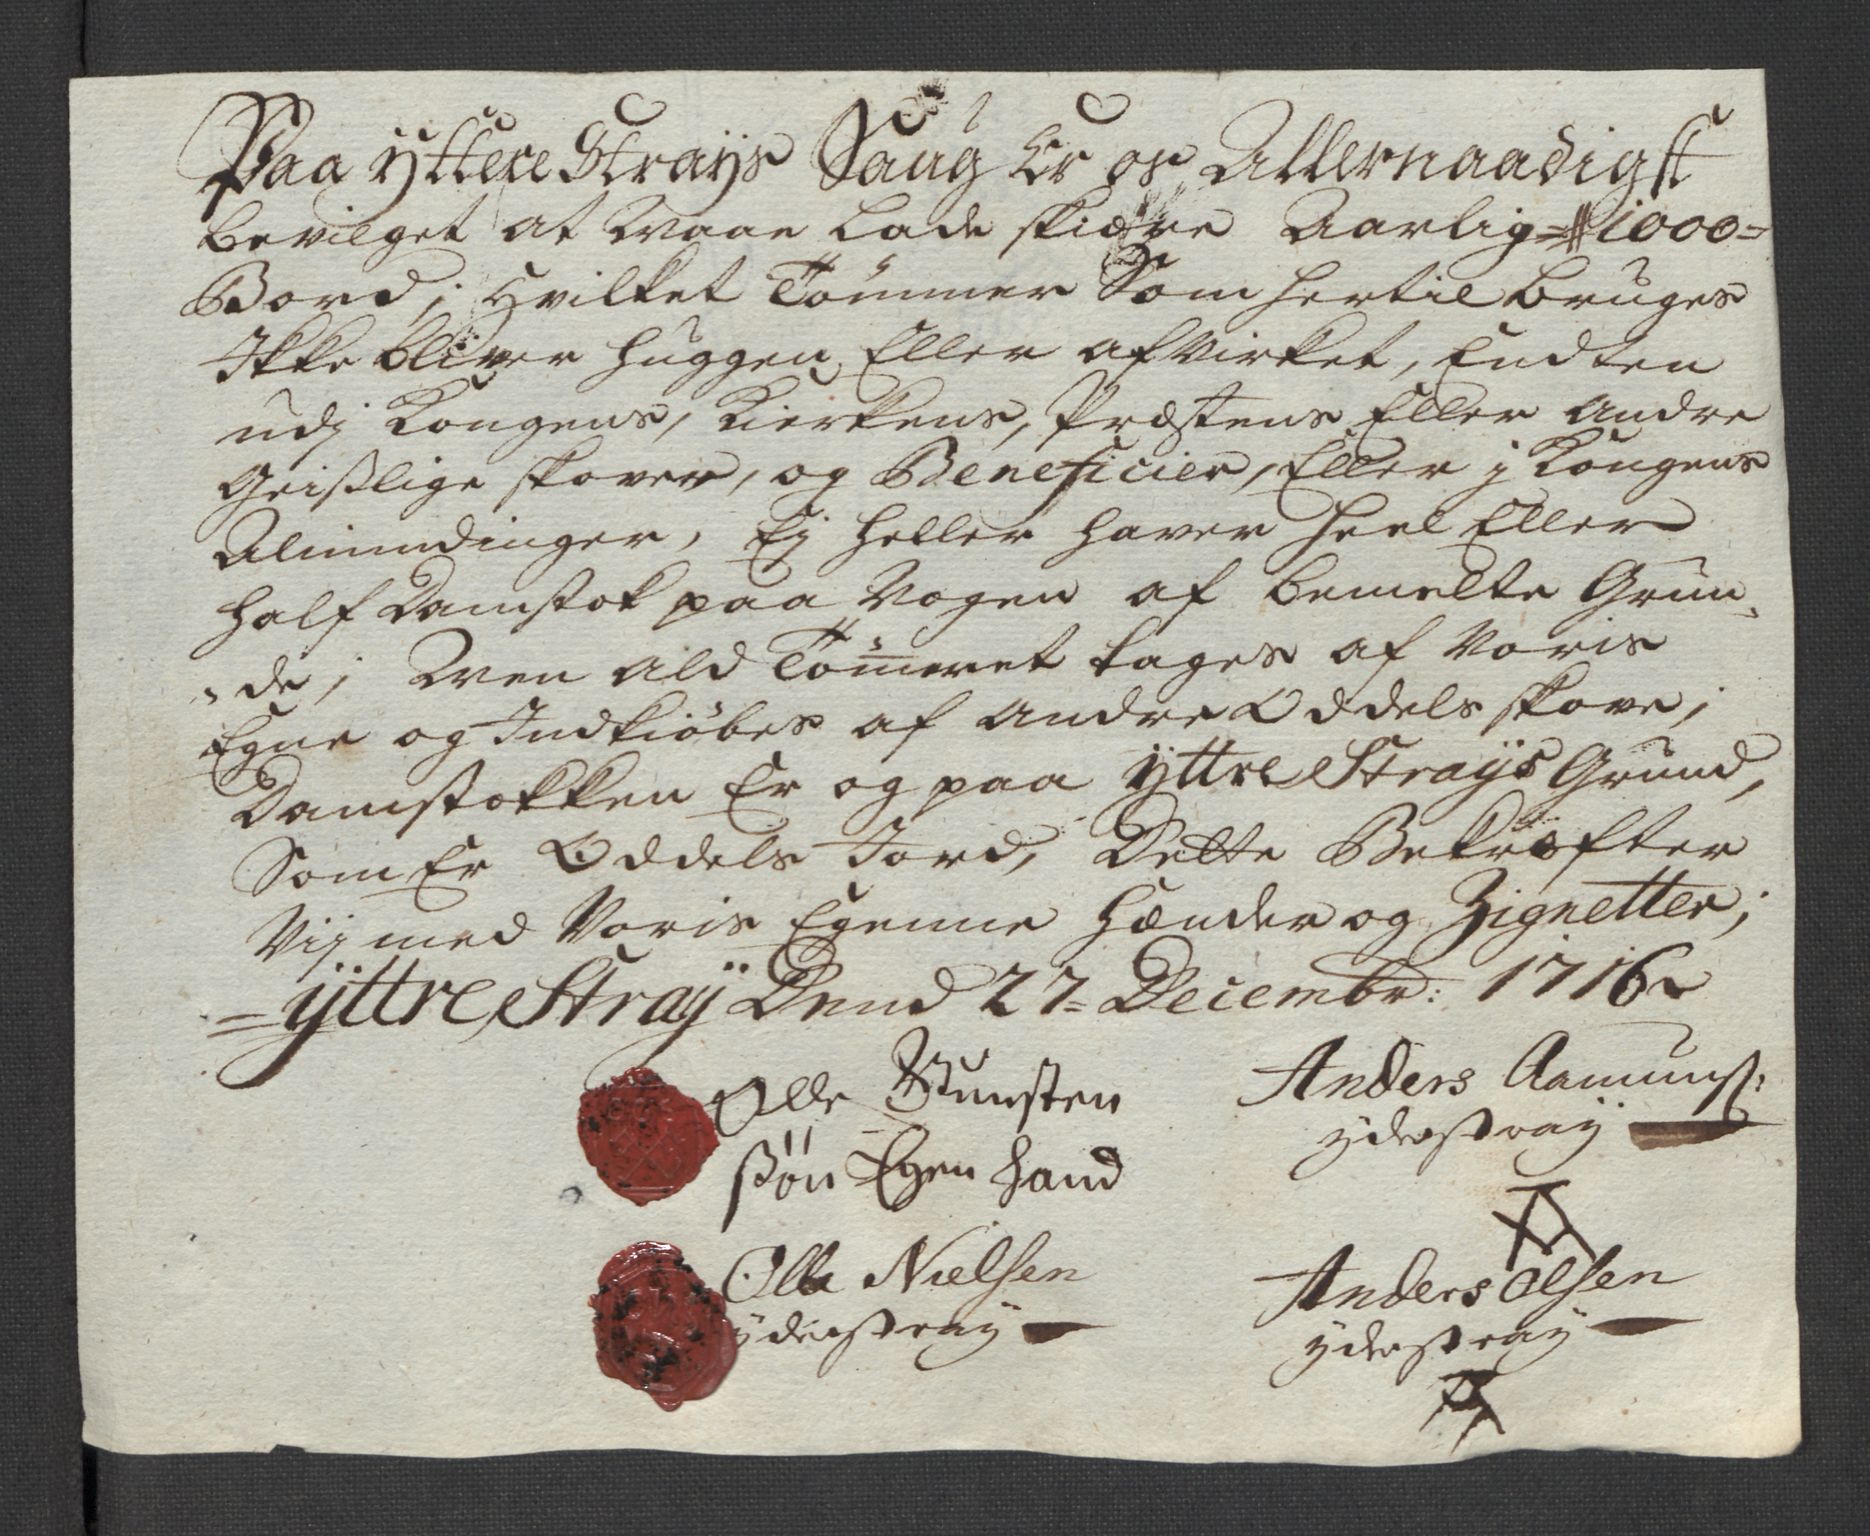 Paa ÿttere Straÿs Saug Er os Allernaadigst
bevilget at Maae Lade skiære Aarlig = 1000 =
Bord; Hvilket Tömmer Som hertil bruges
Ikke bliver huggen Eller afvirket, Endten
udj Kongens, Kierkens, Præstens Eller Andre
Geistlige skover, og Beneficier, Eller j Kongens
Almindinger, Ej heller haver heel Eller
half Damstok paa Nogen af bemelte Grun-
-de; Men Ald Tömeret tages af Voris
Egne og Indkiöbes af Andre Oddels skove;
Damstokken Er og paa ÿttre Straÿs Grund,
Som Er Oddels Jord, Dette Bekræfter
Vij med Voris Egenne Hænder og Zignetter;
= ÿttre Straÿ Dend 27= Decembr: 1716
Olle Gunsten
sön Egen Hand
Anders Aamunss:
yderstraÿ
Olle Nielsen
yderstraÿ
Anders Olsen
yderstraÿ